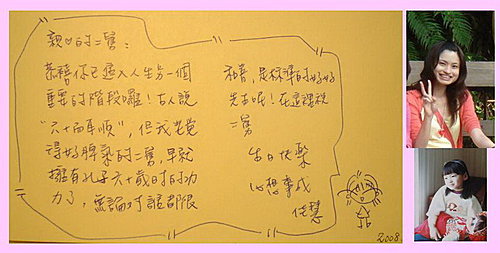 親♡的二舅：
恭禧你已邁入人生另一個
重要的階段囉！古人說
"六十而耳順"，但我覺
得好脾氣的二舅，早就
擁有孔子六十歲時的功
力了，無論對誰都很
和善，是標準的好好
先生呢！在這裡祝
二舅
生日快樂
心想事成
佳慧
2008